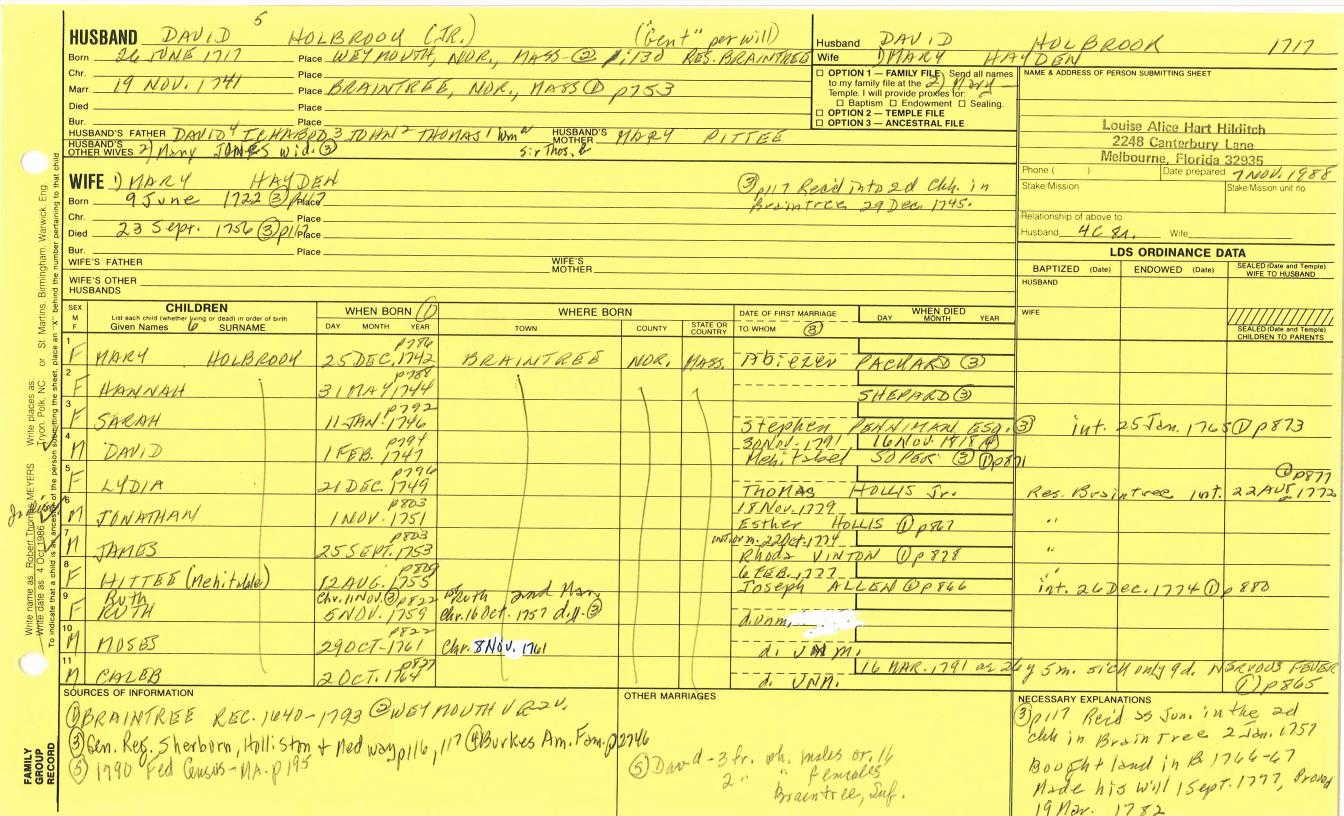 5
HUSBAND DAVID HOLBROOK (JR.) ("Gent" per will)
Born 26 JUNE 1717 Place WEYMOUTH, NOR., MASS ② p:130 RES. BRAINTREE
Chr. Place
Marr. 19 NOV. 1741 Place BRAINTREE, NOR., MASS ① p753
Died Place
Bur. Place
HUSBAND'S FATHER DAVID⁴ ICHABOD³ JOHN² THOMAS¹ Wm HUSBAND'S MOTHER MARY PITTEE
HUSBAND'S OTHER WIVES 2) Mary JONES wid. ③ Sir Thos.
Husband DAVID HOLBROOK 1717
Wife 1) MARY HAYDEN
2) Mary
☐ OPTION 1 — FAMILY FILE Send all names
to my family file at the
Temple. I will provide proxies for:
☐ Baptism ☐ Endowment ☐ Sealing.
☐ OPTION 2 — TEMPLE FILE
☐ OPTION 3 — ANCESTRAL FILE
NAME & ADDRESS OF PERSON SUBMITTING SHEET
Louise Alice Hart Hilditch
2248 Canterbury Lane
Melbourne, Florida 32935
Phone ( ) Date prepared 7 NOV. 1988
Stake/Mission Stake/Mission unit no.
Relationship of above to
Husband 4C 8r. Wife
WIFE 1) MARY HAYDEN
Born 9 June 1722 ③ p117 Place
Chr. Place
Died 23 Sept. 1756 ③ p117 Place
Bur. Place
③ p117 Rec'd into 2d Chh. in
Braintree 29 Dec. 1745.
WIFE'S FATHER WIFE'S MOTHER
WIFE'S OTHER HUSBANDS
LDS ORDINANCE DATA
BAPTIZED (Date) ENDOWED (Date) SEALED (Date and Temple) WIFE TO HUSBAND
HUSBAND
WIFE
SEALED (Date and Temple) CHILDREN TO PARENTS
SEX M F
CHILDREN
List each child (whether living or dead) in order of birth
Given Names 6 SURNAME
WHEN BORN ①
DAY MONTH YEAR
WHERE BORN
TOWN COUNTY STATE OR COUNTRY
DATE OF FIRST MARRIAGE
TO WHOM ③
WHEN DIED
DAY MONTH YEAR
1 F MARY HOLBROOK 25 DEC. 1742 p786 BRAINTREE NOR. MASS. Abiezer PACKARD ③
2 F HANNAH 31 MAY 1744 p788 SHEPARD ③
3 F SARAH 11 JAN. 1746 p792 Stephen PENNIMAN, ESQ. ③ int. 25 Jan. 1765 ① p873
4 M DAVID 1 FEB. 1747 p794 30 NOV. 1791 16 NOV. 1818 ④ Mehitabel SOPER ③ ① p871
5 F LYDIA 21 DEC. 1749 p796 THOMAS HOLLIS Jr. Res. Braintree Int. 22 AUG. 1772 ① p877
6 M JONATHAN 1 NOV. 1751 p803 18 Nov. 1779 Esther HOLLIS ① p867 "
7 M JAMES 25 SEPT. 1753 p803 m. 22 Oct. 1774 Rhoda VINTON ① p878 "
8 F HITTEE (Mehitable) 12 AUG. 1755 p809 6 FEB. 1777 Joseph ALLEN ① p866 " int. 26 Dec. 1774 ① p880
9 F Ruth RUTH Chr. 11 Nov. ③ p822 5 NOV. 1759 Ruth and Mary Chr. 16 Oct. 1757 d.y. ③ d. unm.
10 M MOSES 29 OCT. 1761 p822 Chr. 8 Nov. 1761 d. UNM.
11 M CALEB 2 OCT. 1764 p827 d. UNM. 16 MAR. 1791 ae 26 y 5 m. sick only 9d. NERVOUS FEVER ① p865
SOURCES OF INFORMATION
① BRAINTREE REC. 1640-1793 ② WEYMOUTH VR 2v.
③ Gen. Reg. Sherborn, Holliston & Medway p116, 117 ④ Burkes Am. Fam. p2746
⑤ 1790 Fed Census-MA. p195
OTHER MARRIAGES
⑤ David - 3 fr. wh. males ov. 16
2 " " females
Braintree, Suf.
NECESSARY EXPLANATIONS
③ p117 Rec'd as Jun. in the 2d
chh in BrainTree 2 Jan. 1757
Bought land in B. 1766-67
Made his Will 1 Sept. 1777, Proved
19 Mar. 1782
FAMILY GROUP RECORD
Write name as: Robert Thomas MEYERS Write places as: Tryon, Polk, NC or St. Martins, Birmingham, Warwick, Eng.
Write date as: 4 Oct 1986
To indicate that a child is an ancestor of the person submitting the sheet, place an "X" behind the number pertaining to that child